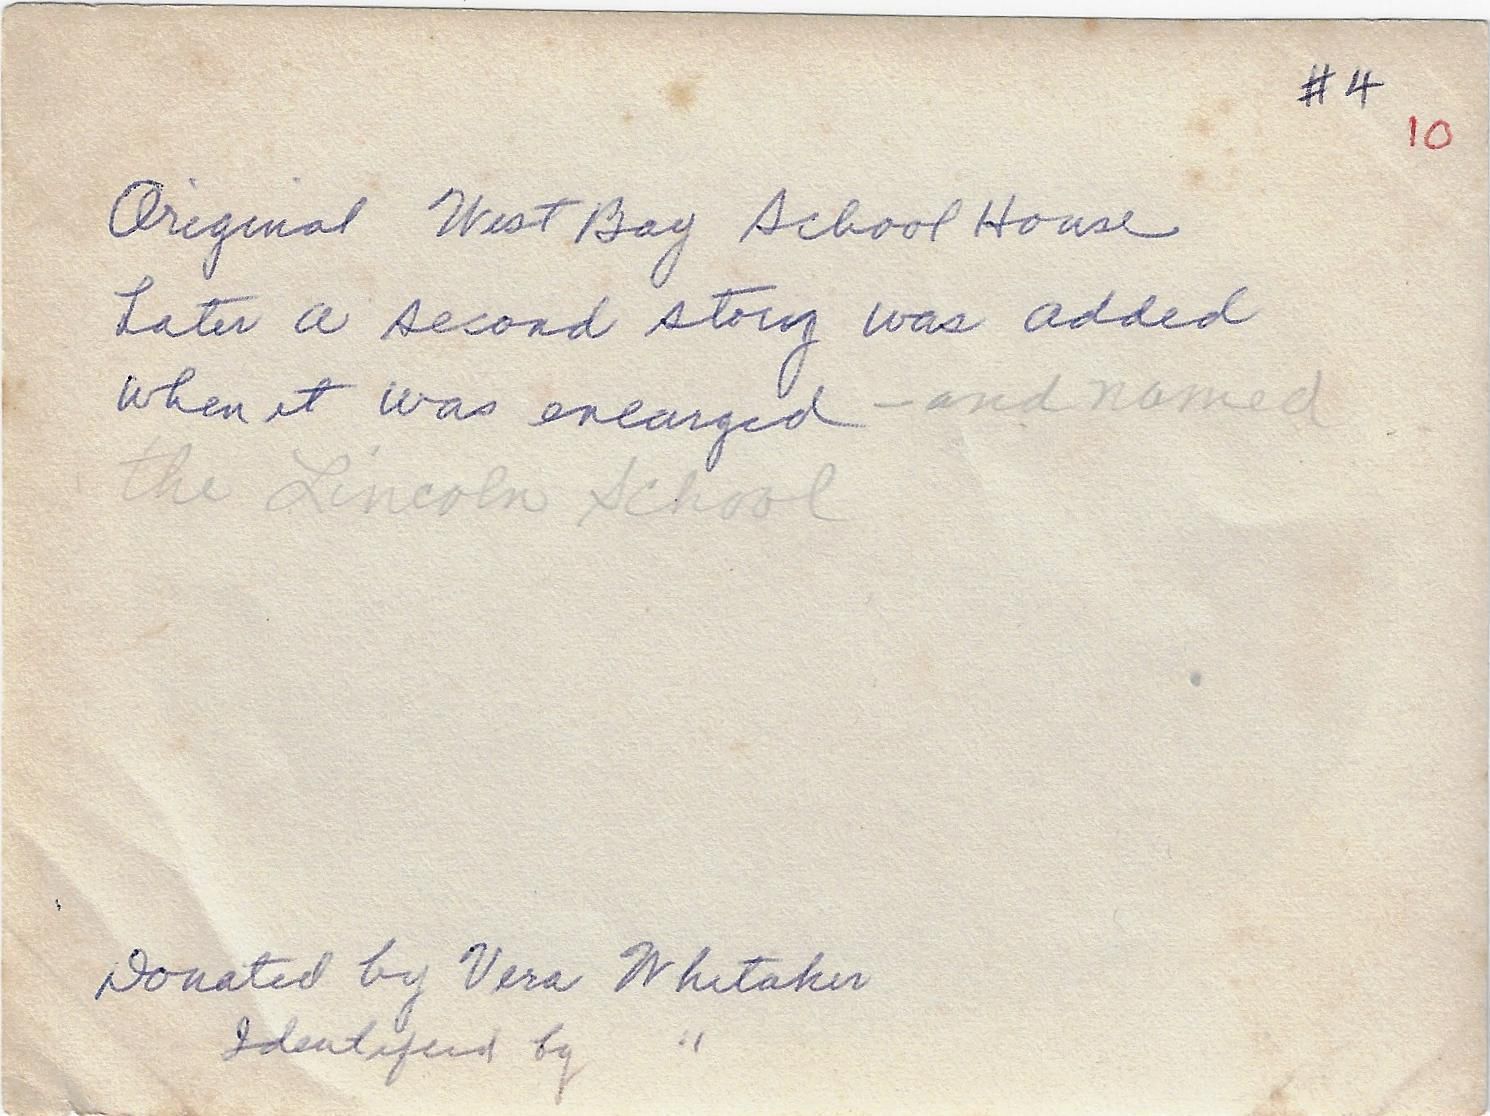 #4
10
Original West Bay School House
Later a second story was added
when it was enlarged – and named
the Lincoln School
Donated by Vera Whitaker
Identified by "